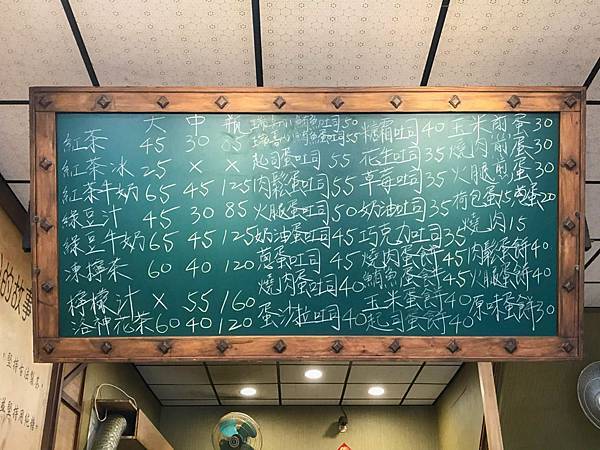 大 中 瓶
紅茶 45 30 85
紅茶冰 25 x x
紅茶牛奶 65 45 125
綠豆汁 45 30 85
綠豆牛奶 65 45 125
凍檸茶 60 40 120
檸檬汁 x 55 160
洛神花茶 60 40 120
瑞士小鮪魚吐司 50
起司蛋吐司 55
肉鬆蛋吐司 55
火腿蛋吐司 50
奶油蛋吐司 45
蔥蛋吐司 45
燒肉蛋吐司 40
蛋沙拉吐司 40
糖霜吐司 40
花生吐司 35
草莓吐司 35
奶油吐司 40
巧克力吐司 35
燒肉蛋餅 40
鮪魚蛋餅 45
玉米蛋餅 40
起司蛋餅 40
玉米煎蛋 30
燒肉煎蛋 30
火腿煎蛋 30
荷包蛋 15 蔥蛋 20
燒肉 15
肉鬆蛋餅 40
火腿蛋餅 40
原味蛋餅 30
的故事